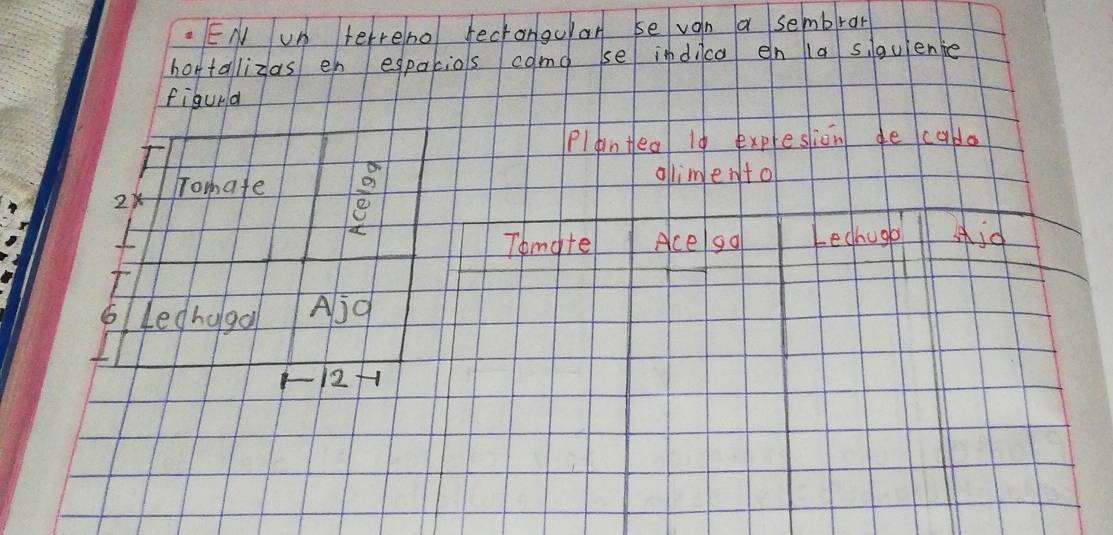 • EN un terreno rectangular se van a sembrar
hortalizas en espacios como se indica en la siguiente
figura
Plantea la expresión de cada
alimento
2x
Tomate
Acelga
6
Lechuga
Ajo
12
Tomate
Acelga
Lechuga
Ajo